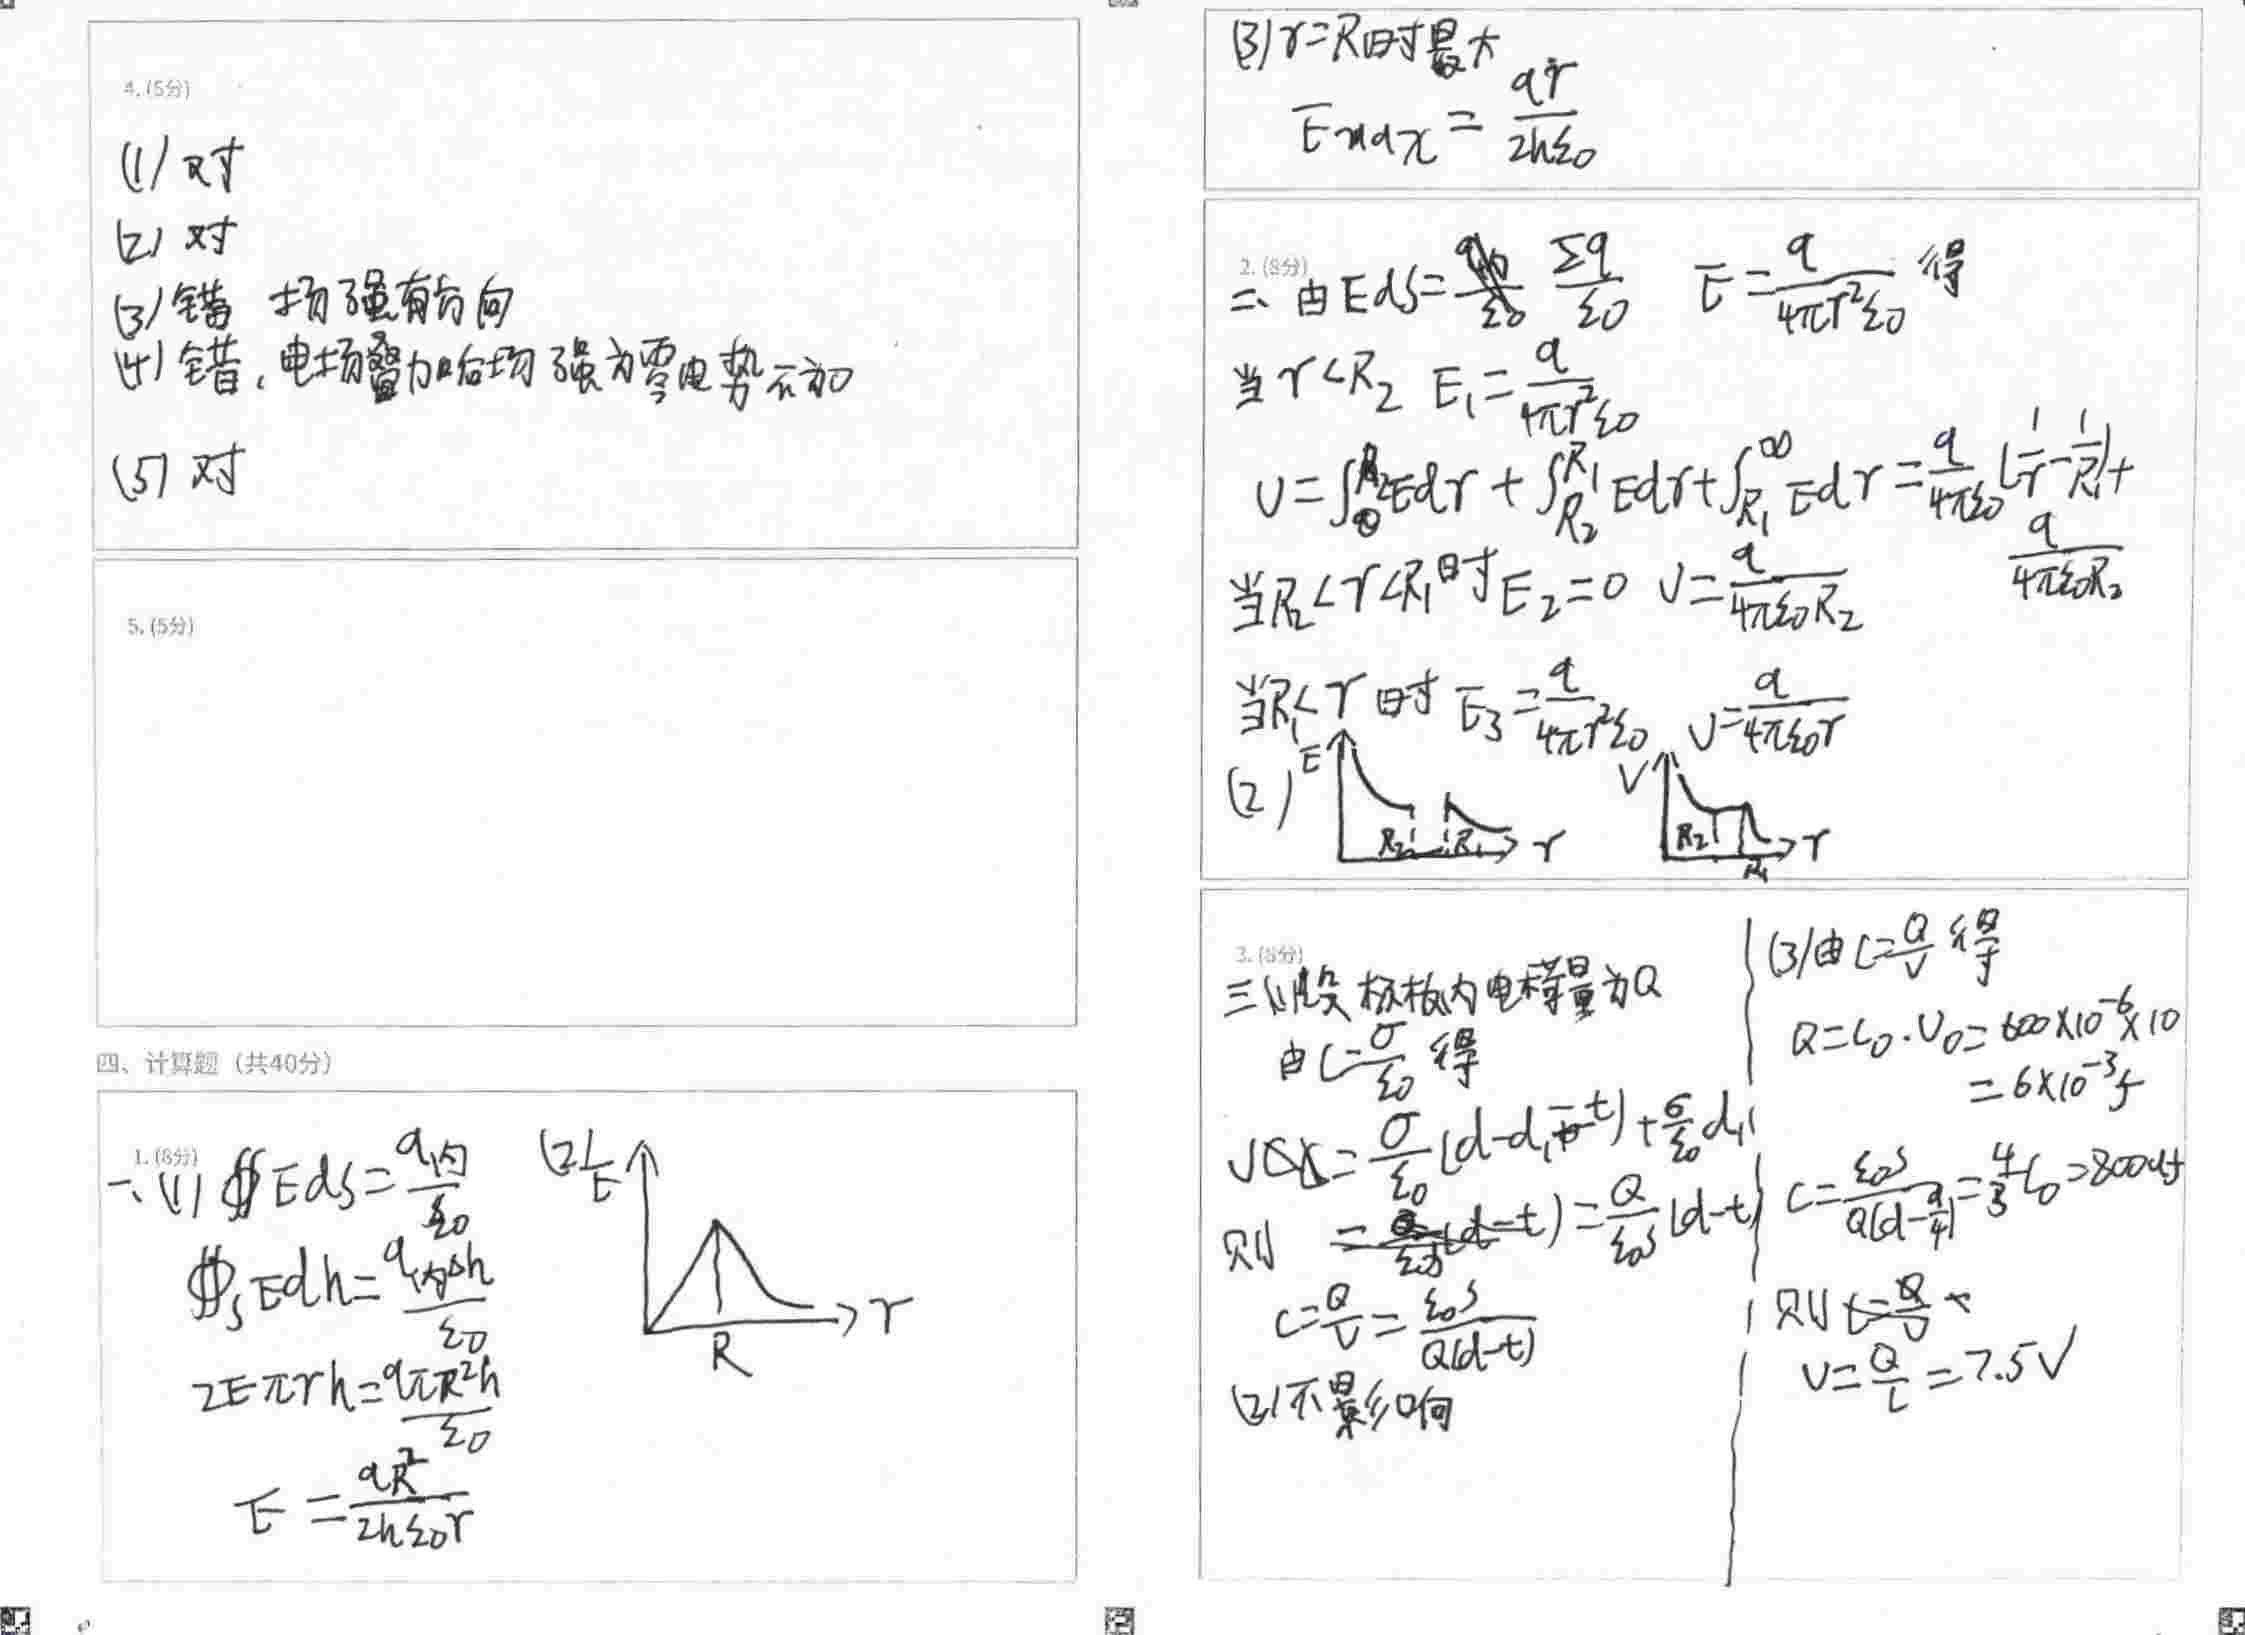 4. (5分)
(1) 对
(2) 对
(3) 错 场强有方向
(4) 错，电场叠加后场强为零电势不为0
(5) 对
5. (5分)
四、计算题（共40分）
1. (8分)
一、(1) ∯ E dS = q内/ε0
∯s E dh = q内Δh/ε0
2Eπrh = qπR²h/ε0
E = qR²/2hε0r
(2)
E
R
r
(3) r=R时最大
Emax = qr/2hε0
2. (8分)
二、由 E dS = Σq/ε0 E = q/4πr²ε0 得
当 r<R2 E1 = q/4πr²ε0
U = ∫ R2 0 Edr + ∫ R1 R2 Edr + ∫ ∞ R1 Edr = q/4πε0 (1/r - 1/R1) + q/4πε0R2
当R2<r<R1时 E2=0 U = q/4πε0R2
当R1<r 时 E3 = q/4πr²ε0 U = q/4πε0r
(2)
E
R2 R1 r
V
R2 R1 r
3. (8分)
三、(1) 设极板内电荷量为Q
由 C = σ/ε0 得
U = σ/ε0 (d-d1-t) + σ/ε0 d1
则 = Q/ε0S (d-t)
C = Q/U = ε0S/Q(d-t)
(2) 不影响
(3) 由 C = Q/U 得
Q = C0·U0 = 600×10⁻⁶×10
= 6×10⁻³f
C = ε0S/Q(d-d/4) = 4/3 C0 = 800uf
则
U = Q/C = 7.5V